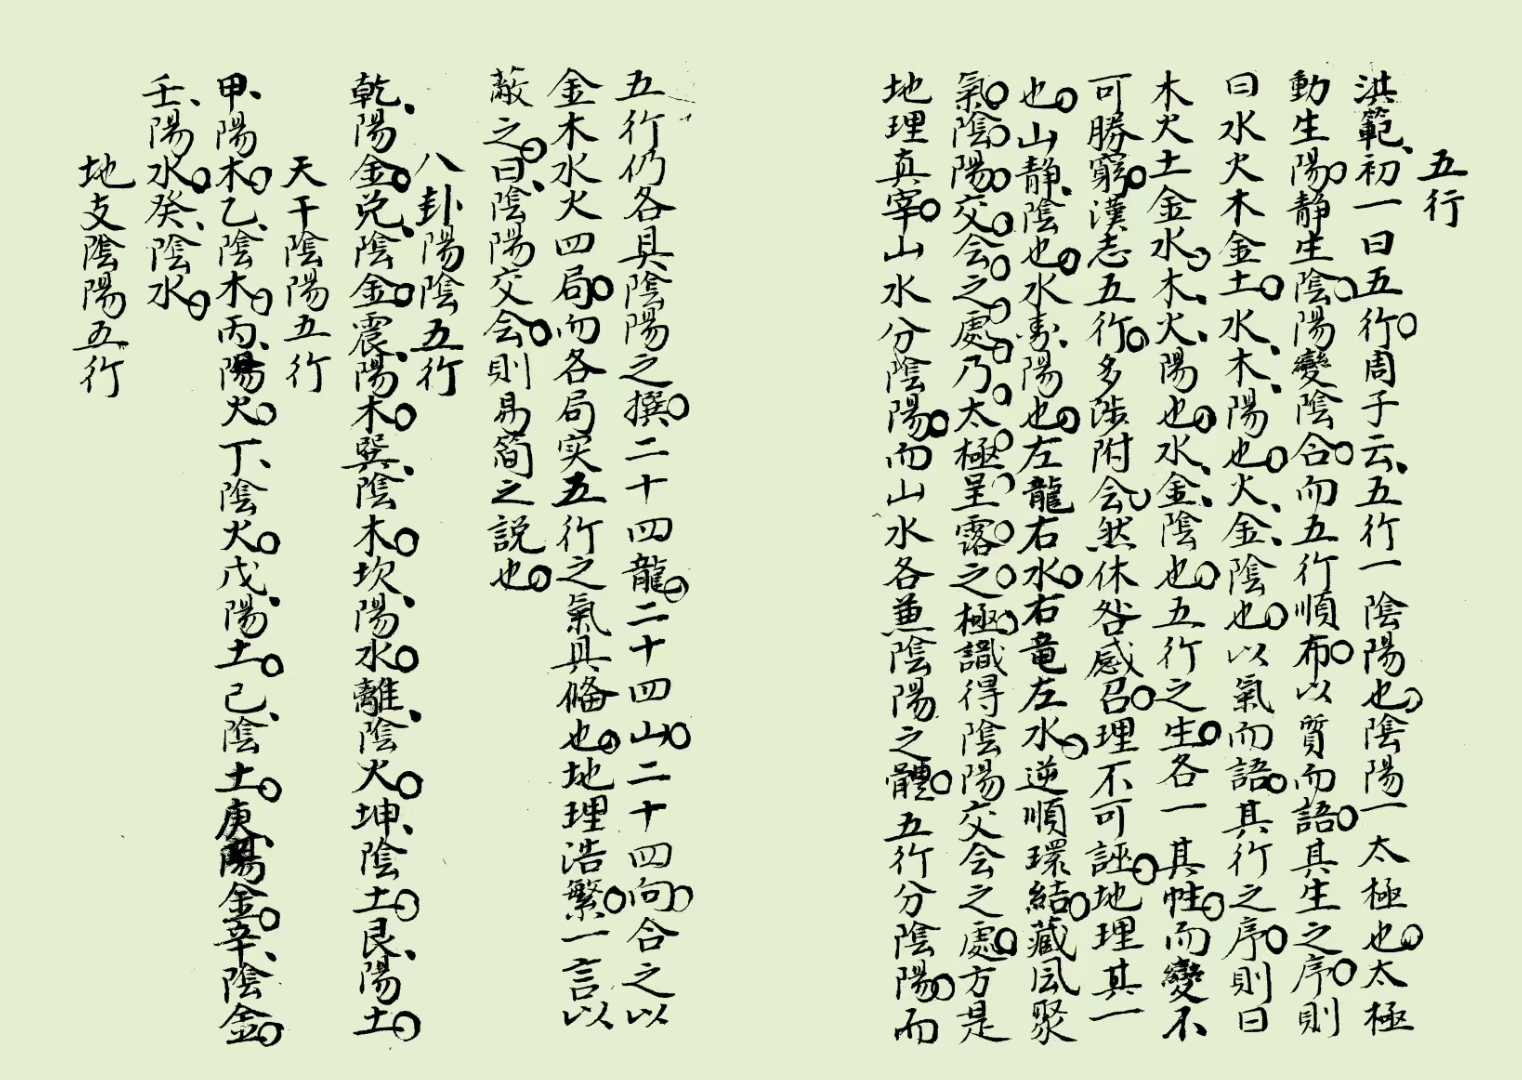 五行
洪範、初一曰五行。周子云、五行一陰陽也。陰陽一太極也。太極
動生陽。静生陰。陽變陰合。而五行順布。以質而語。其生之序。則
曰水火木金土。水、木、陽也。火、金、陰也。以氣而語。其行之序。則曰
木火土金水。木、火、陽也。水、金、陰也。五行之生。各一其性。而變不
可勝窮。漢志五行。多陟附会。然休咎感召。理不可誣。地理其一
也。山静、陰也。水動、陽也。左龍右水。右竜左水。逆順環結。藏风聚
氣。陰陽交会之處。乃太極呈露之極。識得陰陽交会之處。方是
地理真宰。山水分陰陽。而山水各兼陰陽之體。五行分陰陽。而
五行仍各具陰陽之撰。二十四龍。二十四山。二十四向。合之以
金木水火四局。而各局实五行之氣具俻也。地理浩繁。一言以
蔽之。曰、陰陽交会。則易簡之説也。
八卦陽陰五行
乾、陽金。兑、陰金。震、陽木。巽、陰木。坎、陽水。離、陰火。坤、陰土。艮、陽土。
天干陰陽五行
甲、陽木。乙、陰木。丙、陽火。丁、陰火。戊、陽土。己、陰土。庚、陽金。辛、陰金。
壬、陽水。癸、陰水。
地支陰陽五行